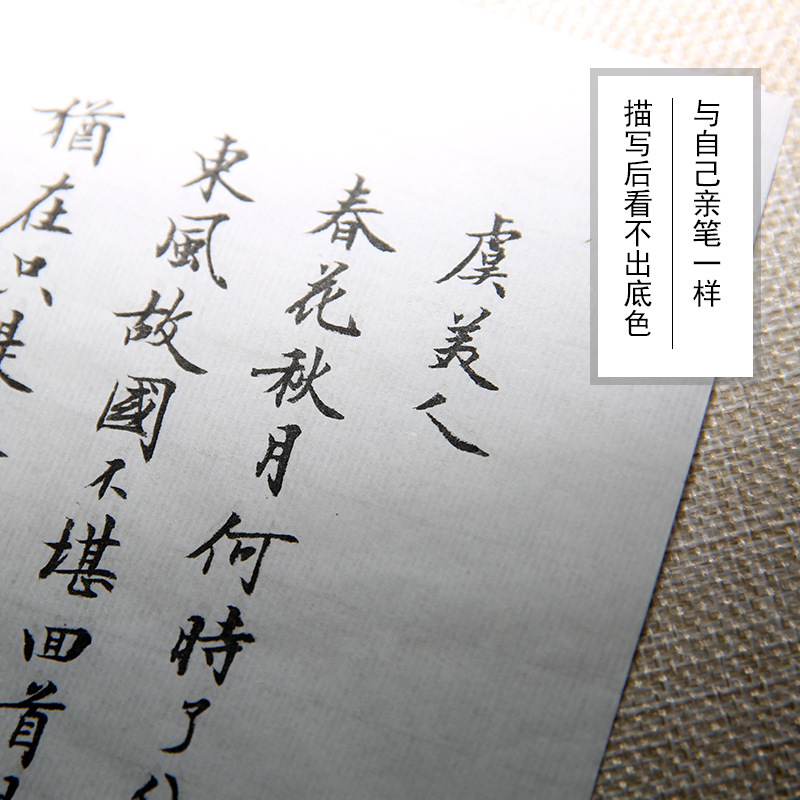 与自己亲笔一样
描写后看不出底色
虞美人
春花秋月何時了
東風故國不堪回首
猶在只是